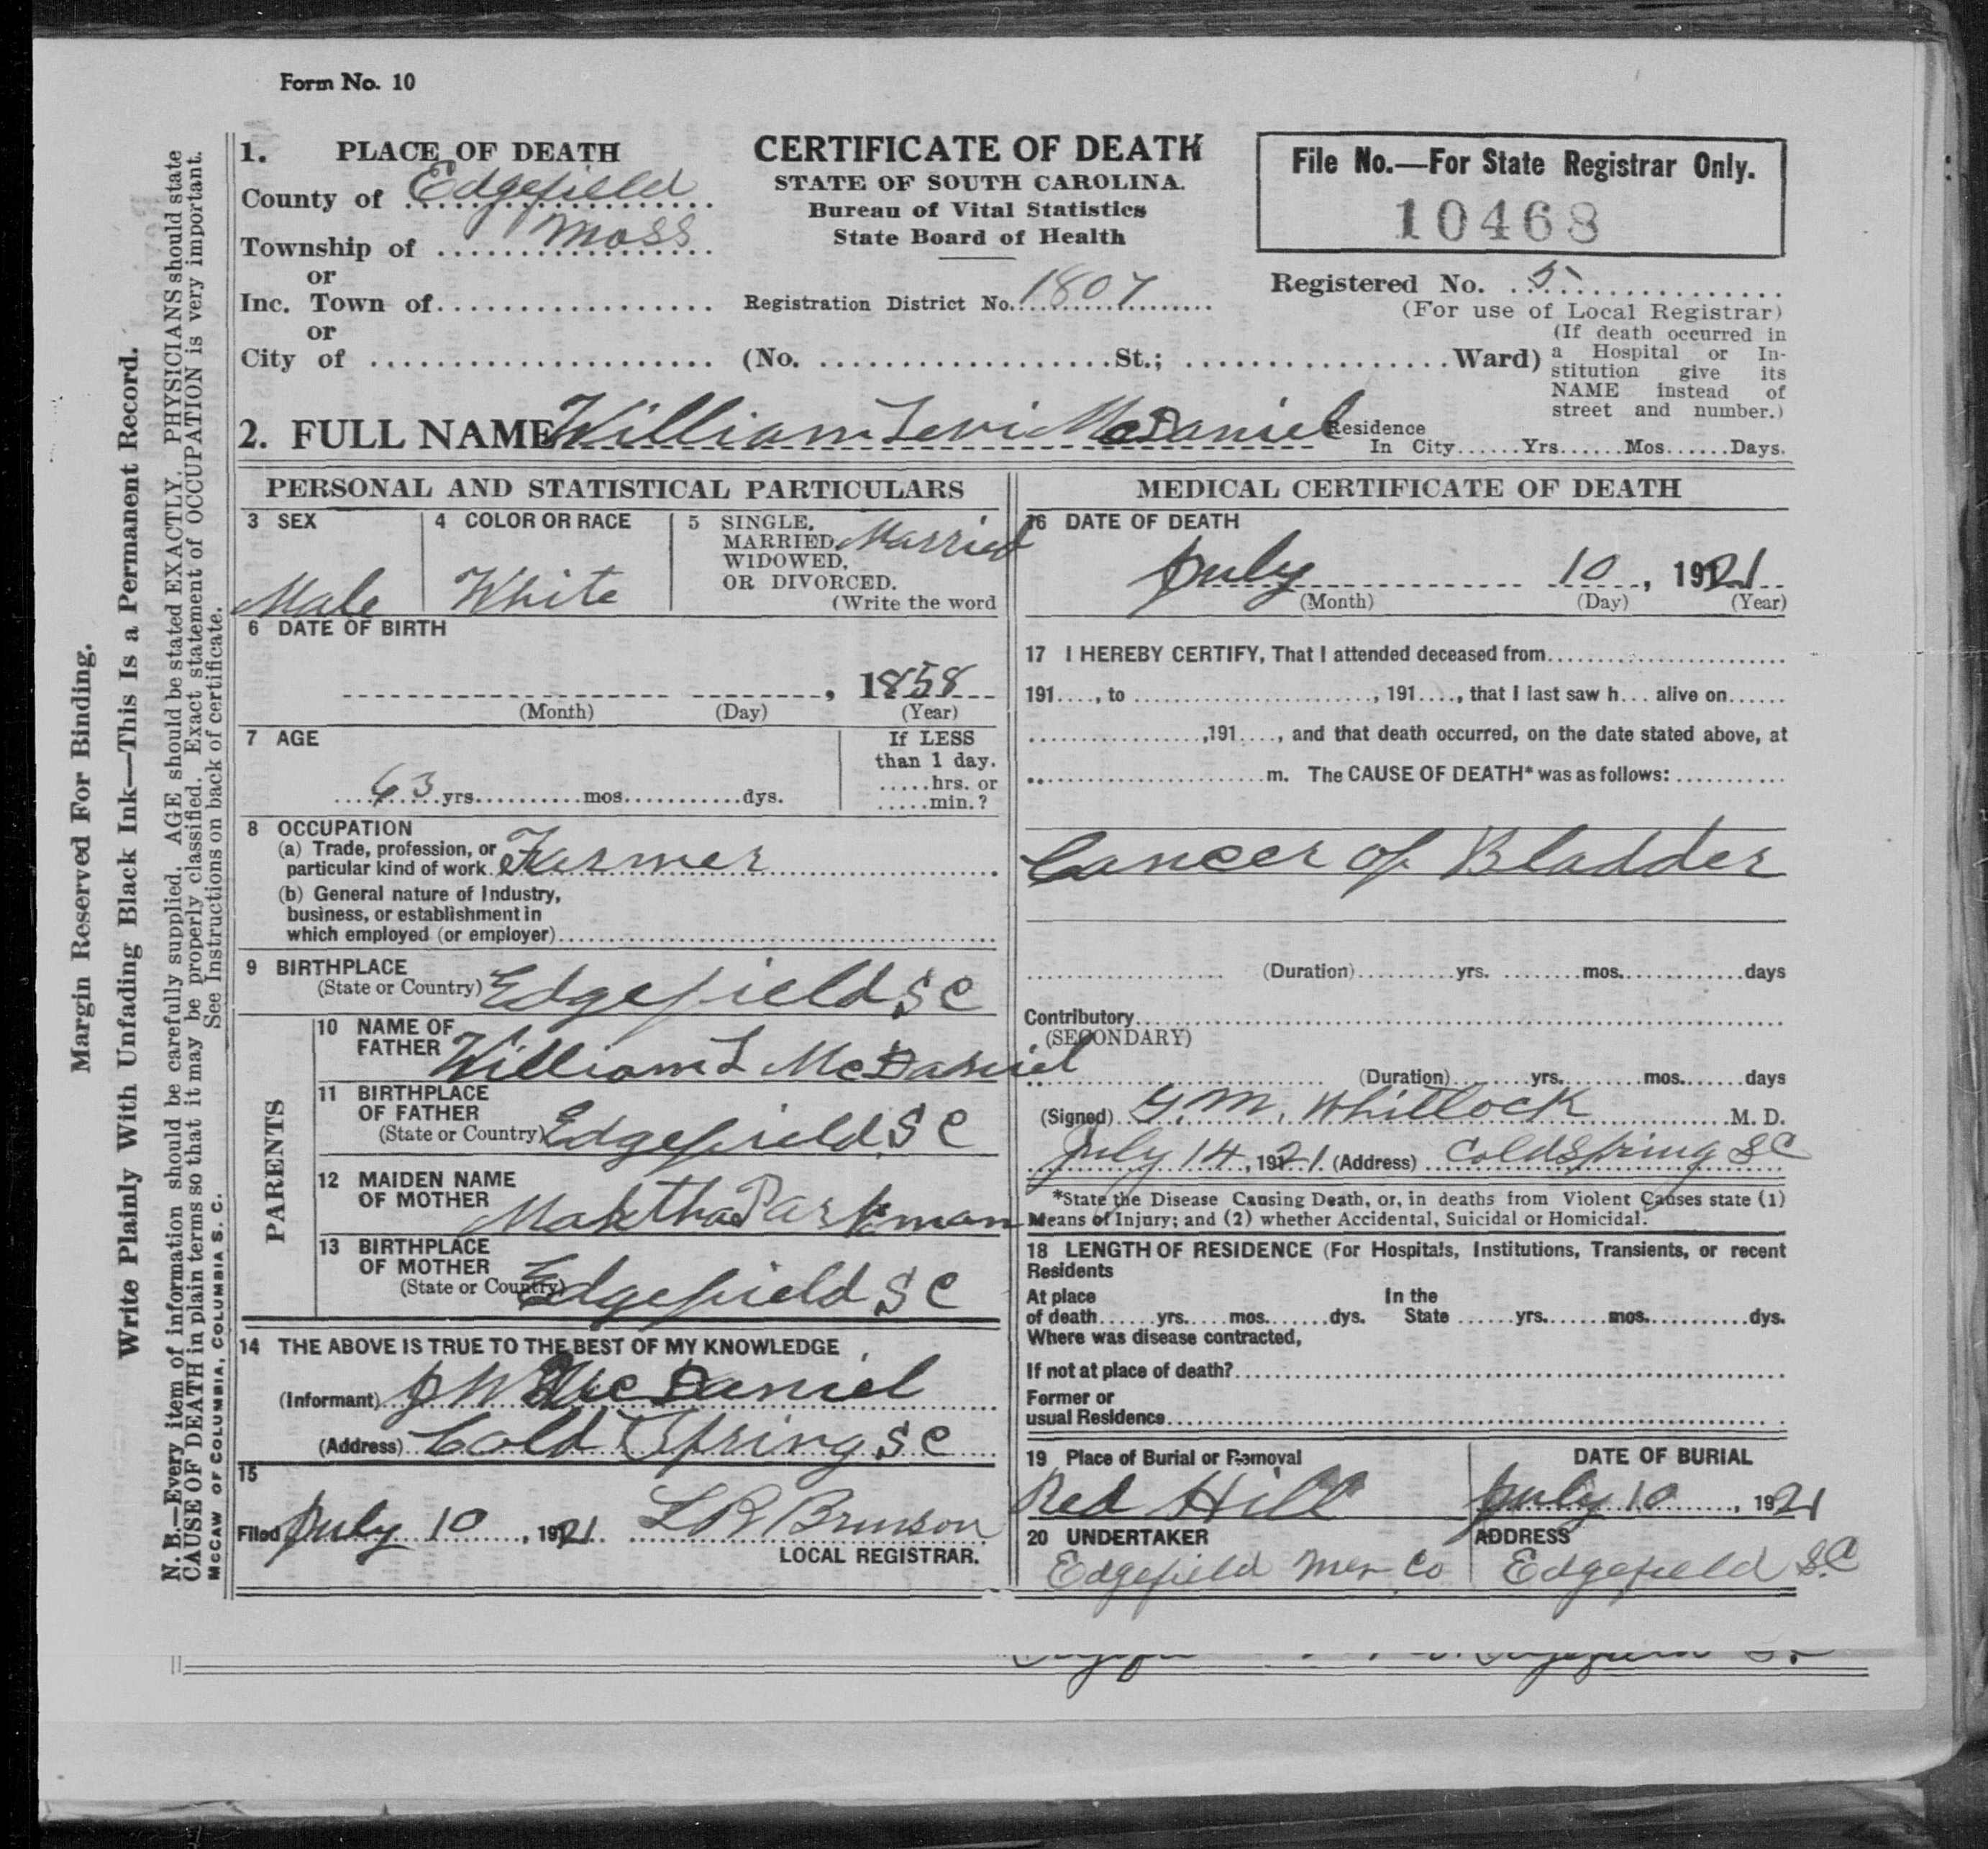 Form No. 10
1. PLACE OF DEATH
County of Edgefield
Township of Moss
or
Inc. Town of
or
City of
CERTIFICATE OF DEATH
STATE OF SOUTH CAROLINA.
Bureau of Vital Statistics
State Board of Health
Registration District No. 1807
(No. St.; Ward)
File No.—For State Registrar Only.
10468
Registered No. 5
(For use of Local Registrar)
(If death occurred in
a Hospital or In-
stitution give its
NAME instead of
street and number.)
2. FULL NAME William Levi McDaniel
Residence
In City Yrs Mos Days.
PERSONAL AND STATISTICAL PARTICULARS
3 SEX
Male
4 COLOR OR RACE
White
5 SINGLE,
MARRIED, Married
WIDOWED,
OR DIVORCED.
(Write the word
6 DATE OF BIRTH
, 1858
(Month) (Day) (Year)
7 AGE
63 yrs. mos. dys.
If LESS
than 1 day.
hrs. or
min.?
8 OCCUPATION
(a) Trade, profession, or
particular kind of work Farmer
(b) General nature of Industry,
business, or establishment in
which employed (or employer)
9 BIRTHPLACE
(State or Country) Edgefield S C
PARENTS
10 NAME OF
FATHER William L McDaniel
11 BIRTHPLACE
OF FATHER
(State or Country) Edgefield S C
12 MAIDEN NAME
OF MOTHER Martha Parkman
13 BIRTHPLACE
OF MOTHER
(State or Country) Edgefield S C
14 THE ABOVE IS TRUE TO THE BEST OF MY KNOWLEDGE
(Informant) J W McDaniel
(Address) Cold Spring S C
15
Filed July 10, 1921 L R Brunson
LOCAL REGISTRAR.
MEDICAL CERTIFICATE OF DEATH
16 DATE OF DEATH
July 10, 1921
(Month) (Day) (Year)
17 I HEREBY CERTIFY, That I attended deceased from
191, to , 191, that I last saw h alive on
,191, and that death occurred, on the date stated above, at
m. The CAUSE OF DEATH* was as follows:
Cancer of Bladder
(Duration) yrs. mos. days
Contributory
(SECONDARY)
(Duration) yrs. mos. days
(Signed) G. M. Whitlock M. D.
July 14, 1921. (Address) Coldspring S C
*State the Disease Causing Death, or, in deaths from Violent Causes state (1)
Means of Injury; and (2) whether Accidental, Suicidal or Homicidal.
18 LENGTH OF RESIDENCE (For Hospitals, Institutions, Transients, or recent
Residents
At place In the
of death yrs. mos. dys. State yrs. mos. dys.
Where was disease contracted,
If not at place of death?
Former or
usual Residence
19 Place of Burial or Removal
Red Hill
DATE OF BURIAL
July 10, 1921
20 UNDERTAKER
Edgefield Mer. Co
ADDRESS
Edgefield S.C
Margin Reserved For Binding.
Write Plainly With Unfading Black Ink—This Is a Permanent Record.
N. B.—Every item of information should be carefully supplied. AGE should be stated EXACTLY. PHYSICIANS should state
CAUSE OF DEATH in plain terms so that it may be properly classified. Exact statement of OCCUPATION is very important.
See Instructions on back of certificate.
McCAW OF COLUMBIA, COLUMBIA S. C.